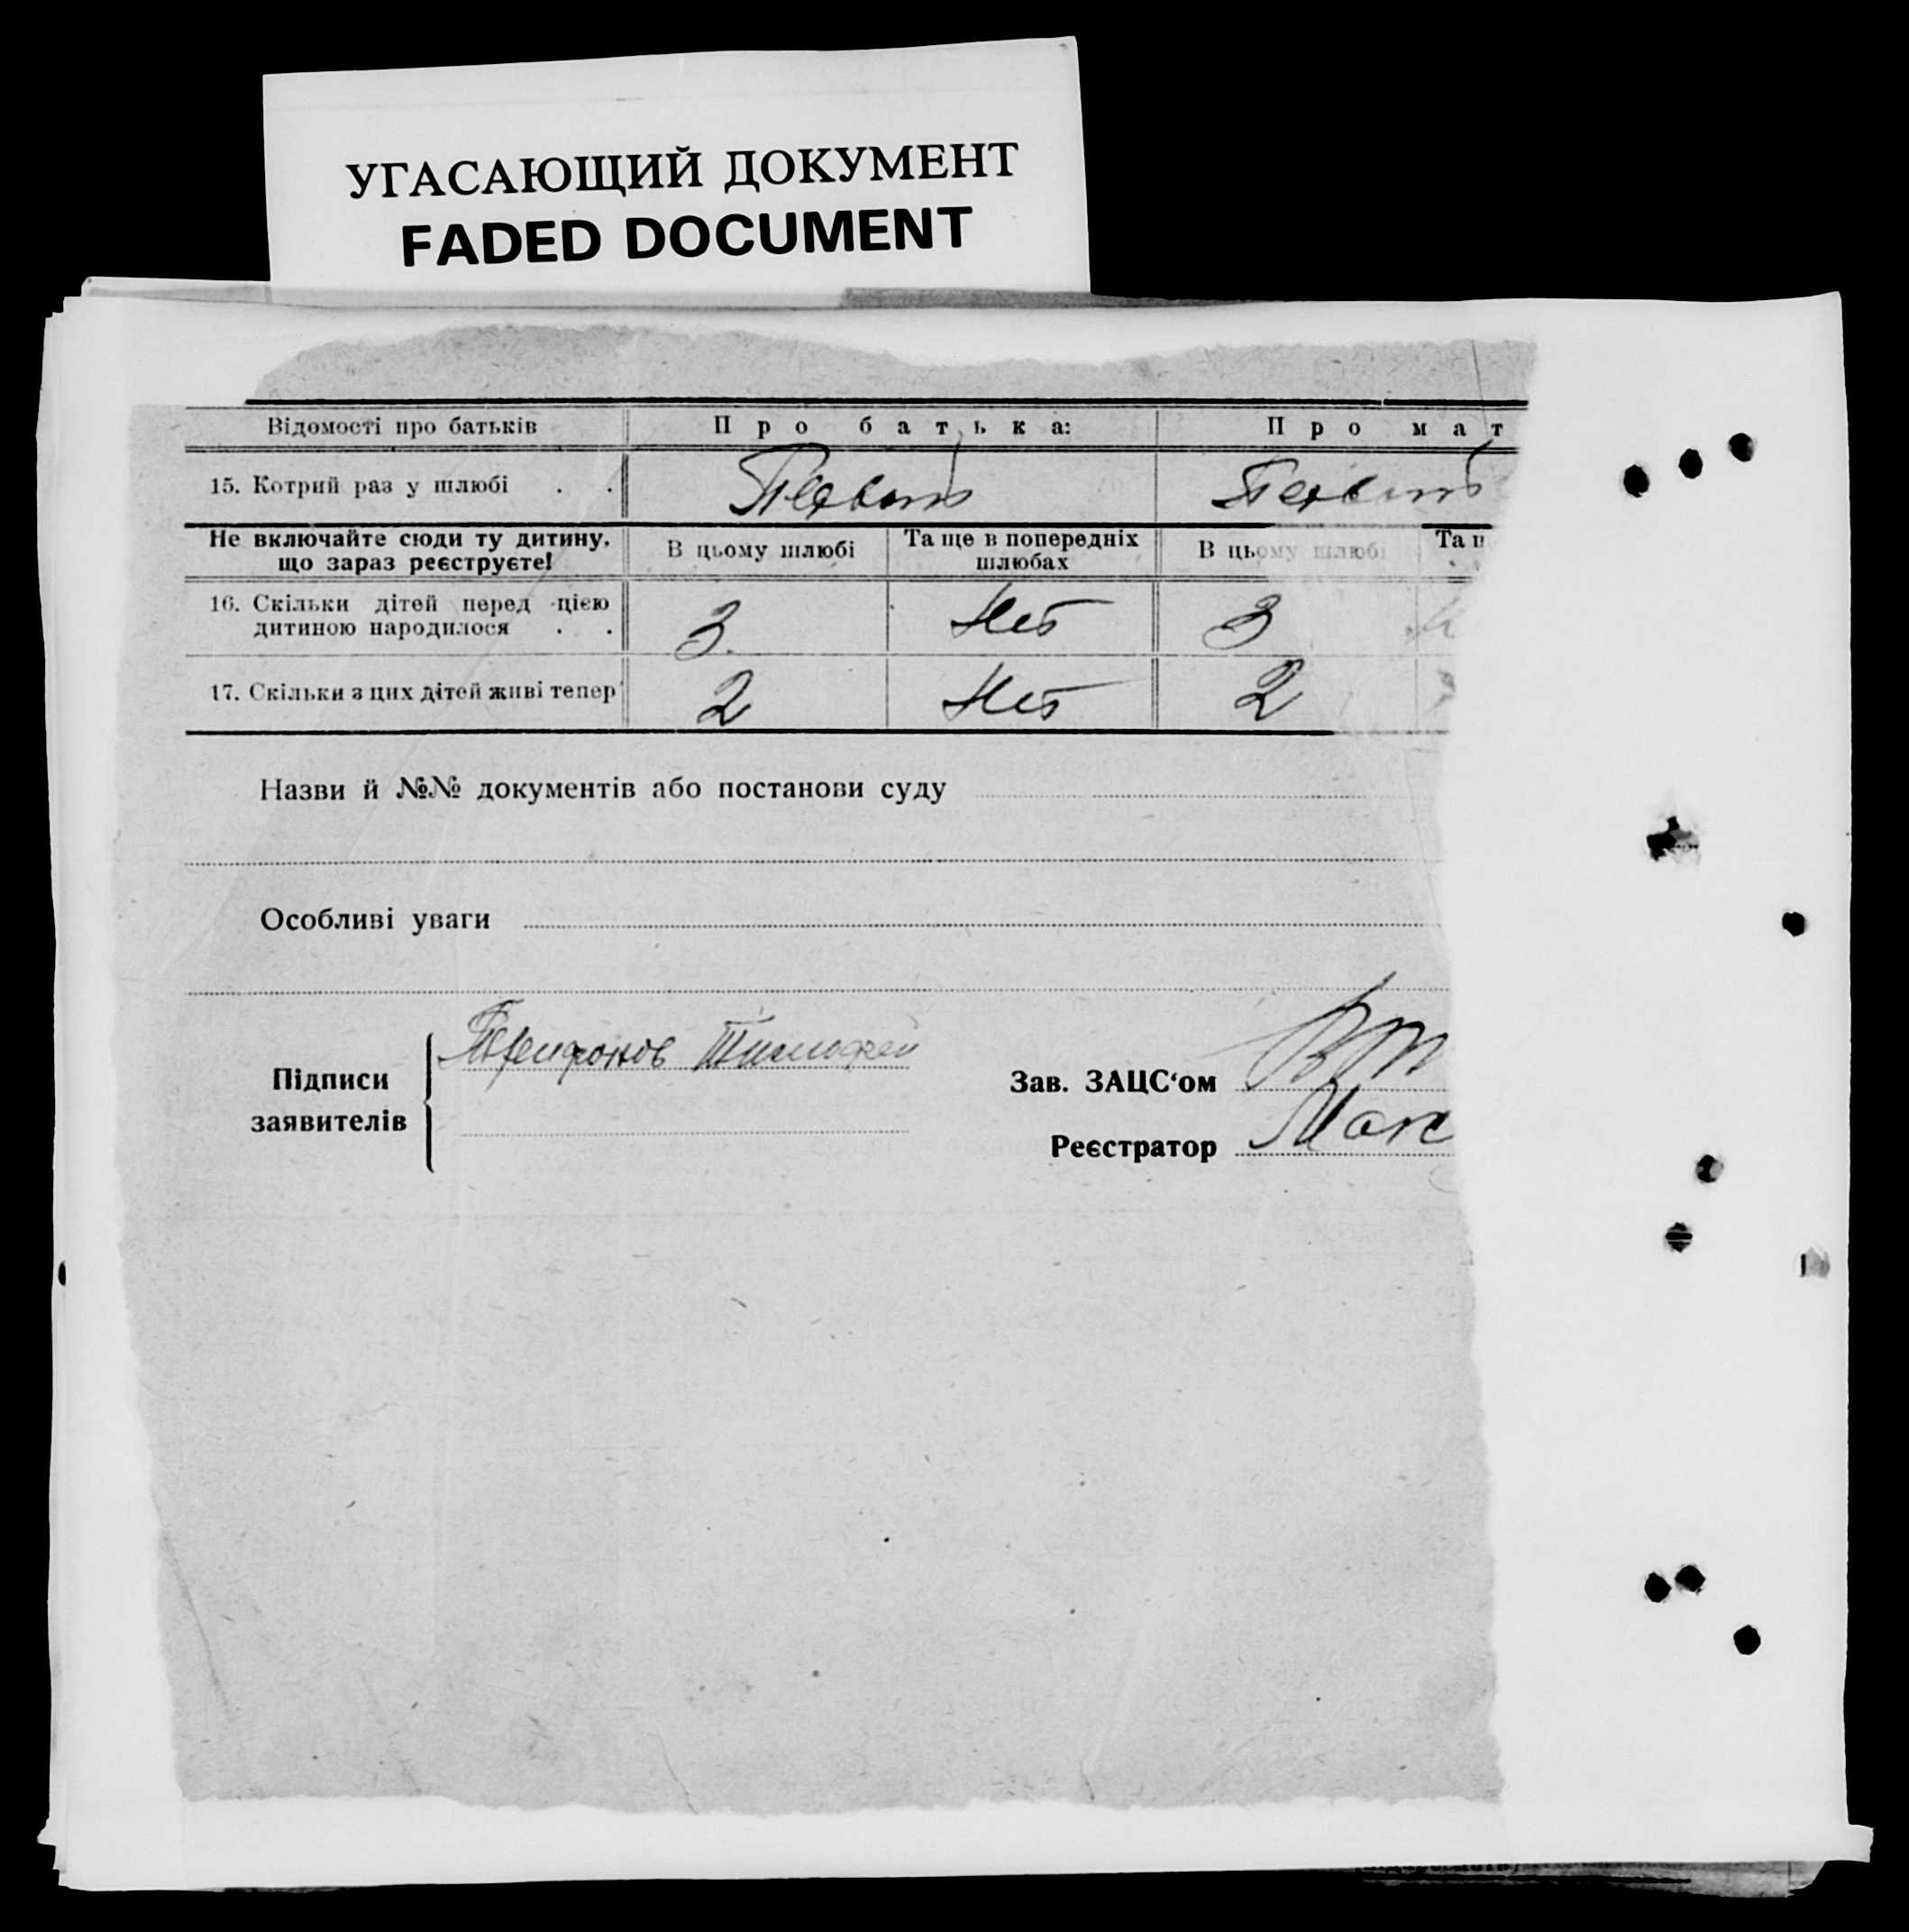 УГАСАЮЩИЙ ДОКУМЕНТ
FADED DOCUMENT
Відомості про батьків Про батька: Про мат
15. Котрий раз у шлюбі . . Первый Первый
Не включайте сюди ту дитину, що зараз реєструєте! В цьому шлюбі Та ще в попередніх шлюбах В цьому шлюбі Та
16. Скільки дітей перед цією
дитиною народилося . . 3. Нет 3
17. Скільки з цих дітей живі тепер 2 Нет 2
Назви й №№ документів або постанови суду
Особливі уваги
Підписи заявителів Тимофей
Зав. ЗАЦС‘ом
Реєстратор